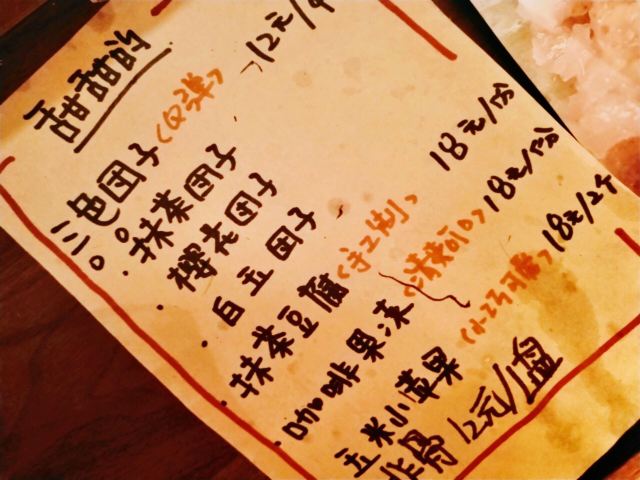 甜甜的
三色团子(Q弹) 12元/个
抹茶团子
樱花团子
白玉团子
抹茶豆腐(手工制) 18元/份
咖啡果冻(清爽可口) 18元/份
玉米小黄果(小巧可爱) 18元/2个
排骨 12元/1盘